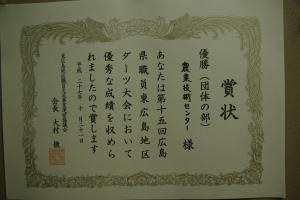 賞状
優勝(団体の部)
農業技術センター 様
あなたは第十五回広島
県職員東広島地区
ダーツ大会において
優秀な成績を収めら
れましたので賞します
平成二十七年十月二十一日
会長 大村 徹